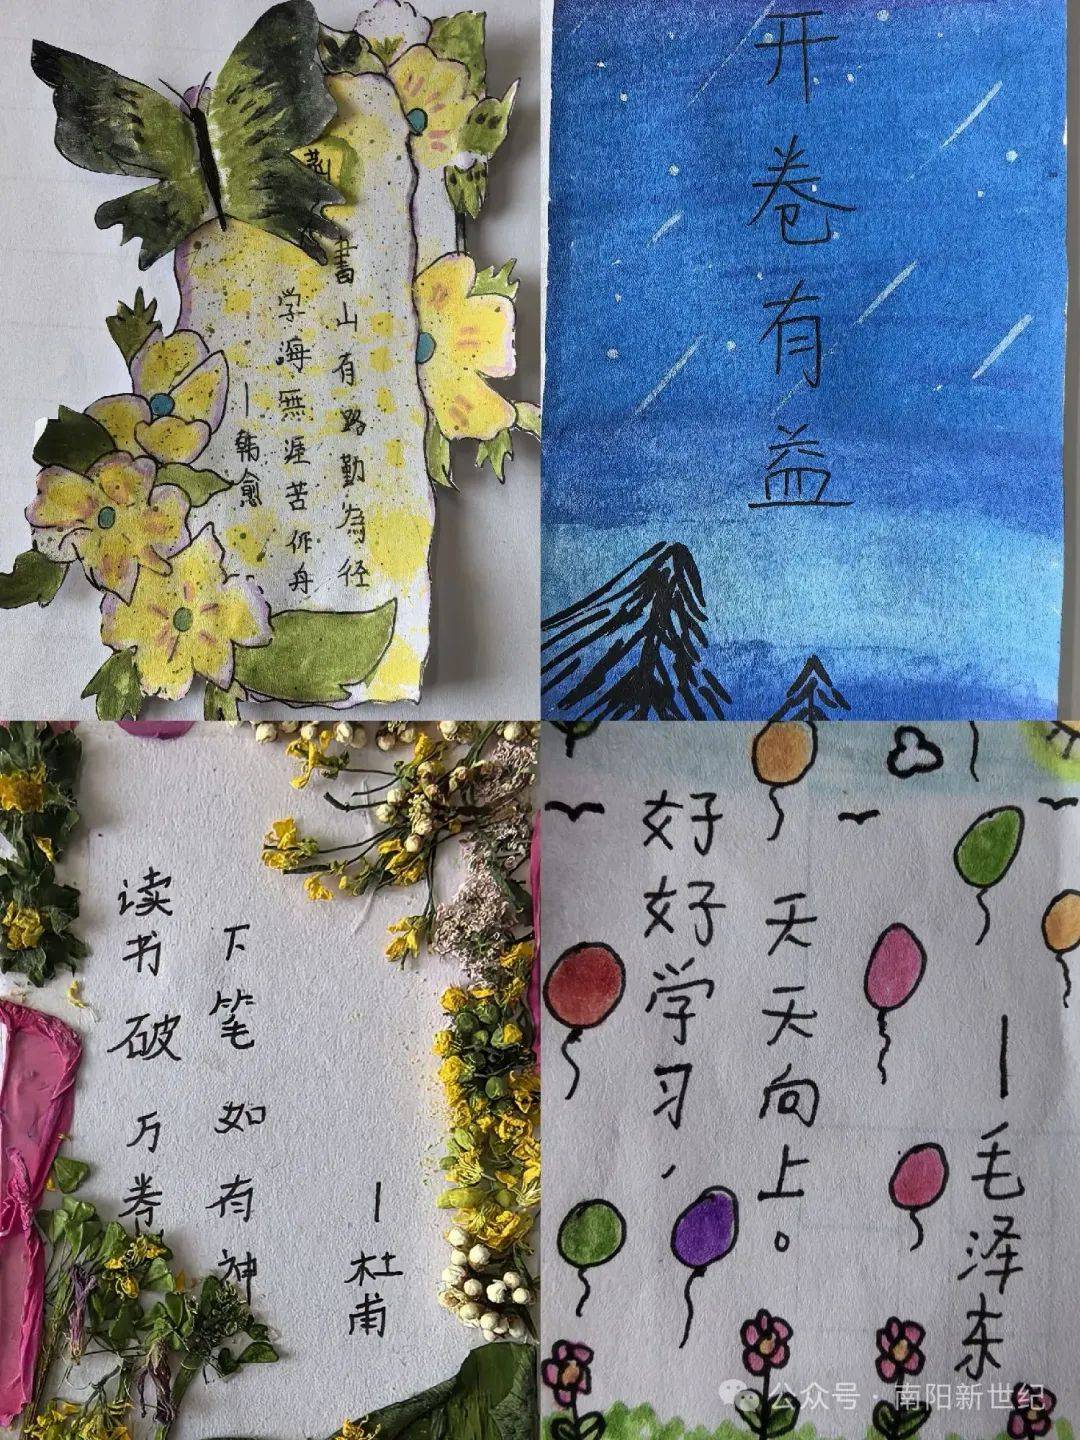 書山有路勤為径
学海無涯苦作舟
—韩愈
开卷有益
读书破万卷
下笔如有神
—杜甫
好好学习,
天天向上。
—毛泽东
公众号·南阳新世纪